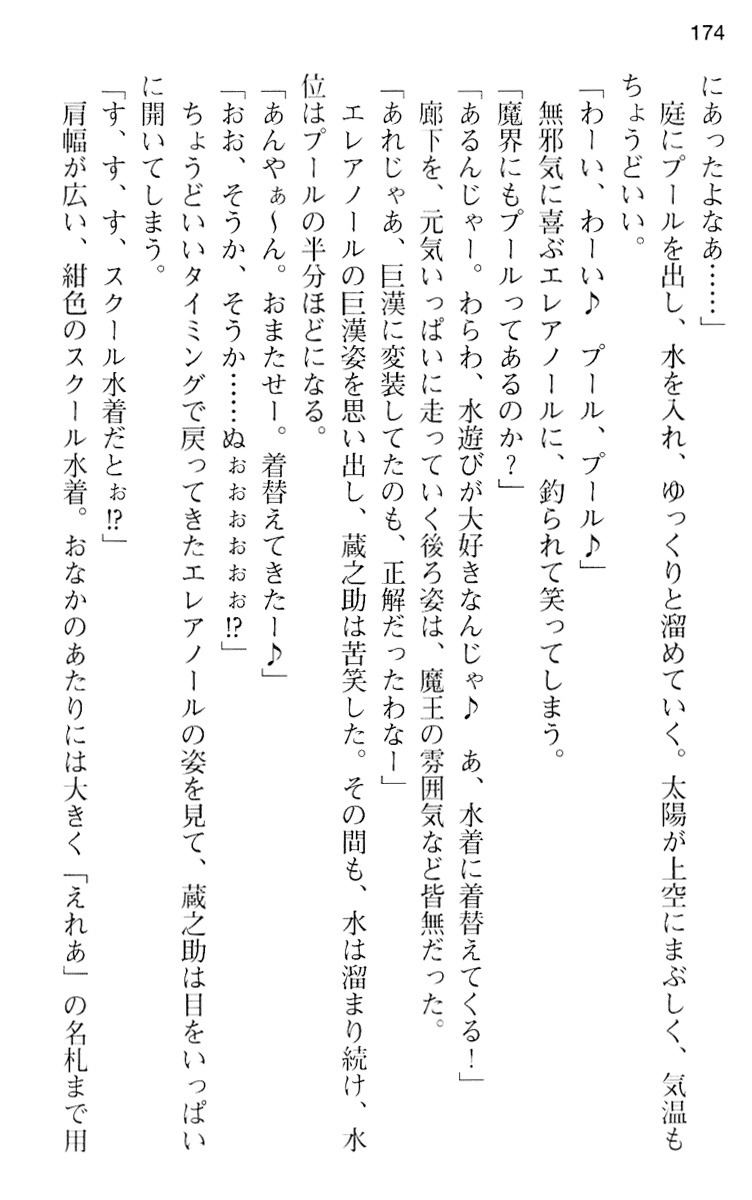 174
にあったよなあ……」
　庭にプールを出し、水を入れ、ゆっくりと溜めていく。太陽が上空にまぶしく、気温も
ちょうどいい。
「わーい、わーい♪　プール、プール♪」
　無邪気に喜ぶエレアノールに、釣られて笑ってしまう。
「魔界にもプールってあるのか？」
「あるんじゃー。わらわ、水遊びが大好きなんじゃ♪　あ、水着に着替えてくる！」
　廊下を、元気いっぱいに走っていく後ろ姿は、魔王の雰囲気など皆無だった。
「あれじゃあ、巨漢に変装してたのも、正解だったわなー」
　エレアノールの巨漢姿を思い出し、蔵之助は苦笑した。その間も、水は溜まり続け、水
位はプールの半分ほどになる。
「あんやぁ～ん。おまたせー。着替えてきたー♪」
「おお、そうか、そうか……ぬぉぉぉぉぉぉ!?」
　ちょうどいいタイミングで戻ってきたエレアノールの姿を見て、蔵之助は目をいっぱい
に開いてしまう。
「す、す、す、スクール水着だとぉ!?」
　肩幅が広い、紺色のスクール水着。おなかのあたりには大きく「えれあ」の名札まで用